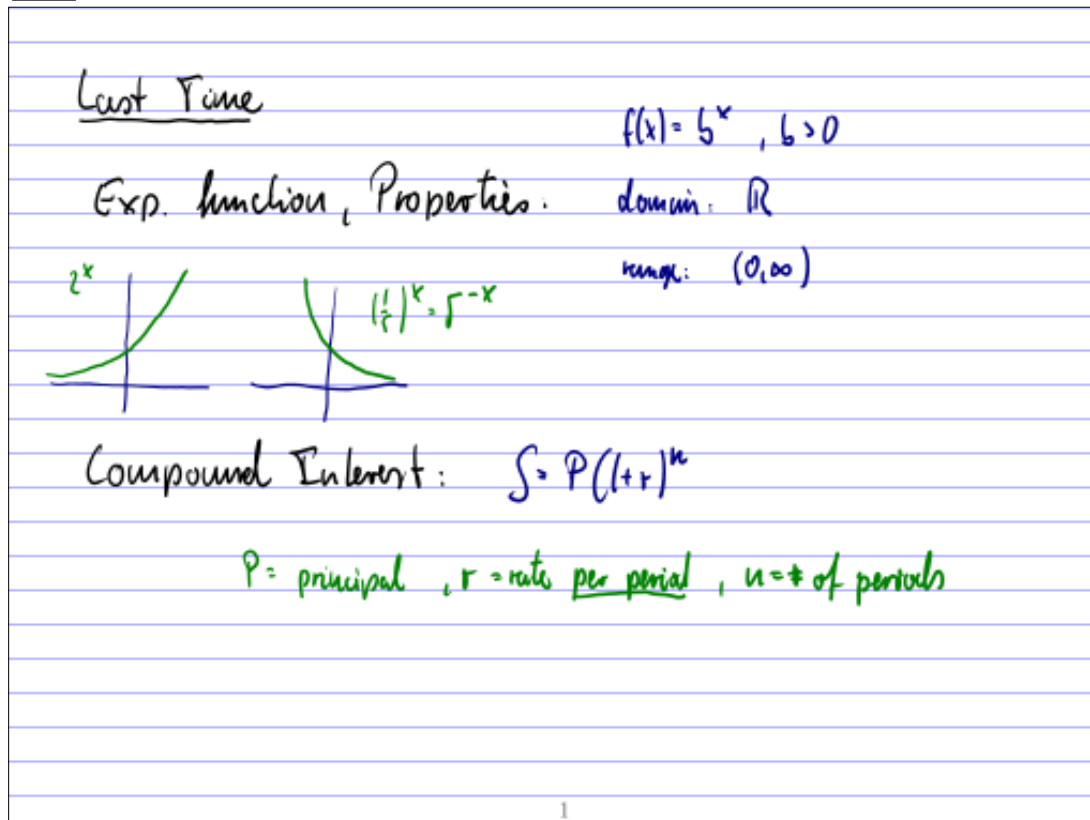 Last Time
f(x) = b^x , b > 0
Exp. function, Properties.
domain: ℝ
range: (0,∞)
2^x
(1/5)^x = 5^-x
Compound Interest: S = P(1+r)^n
P = principal , r = rate per period , n = # of periods
1